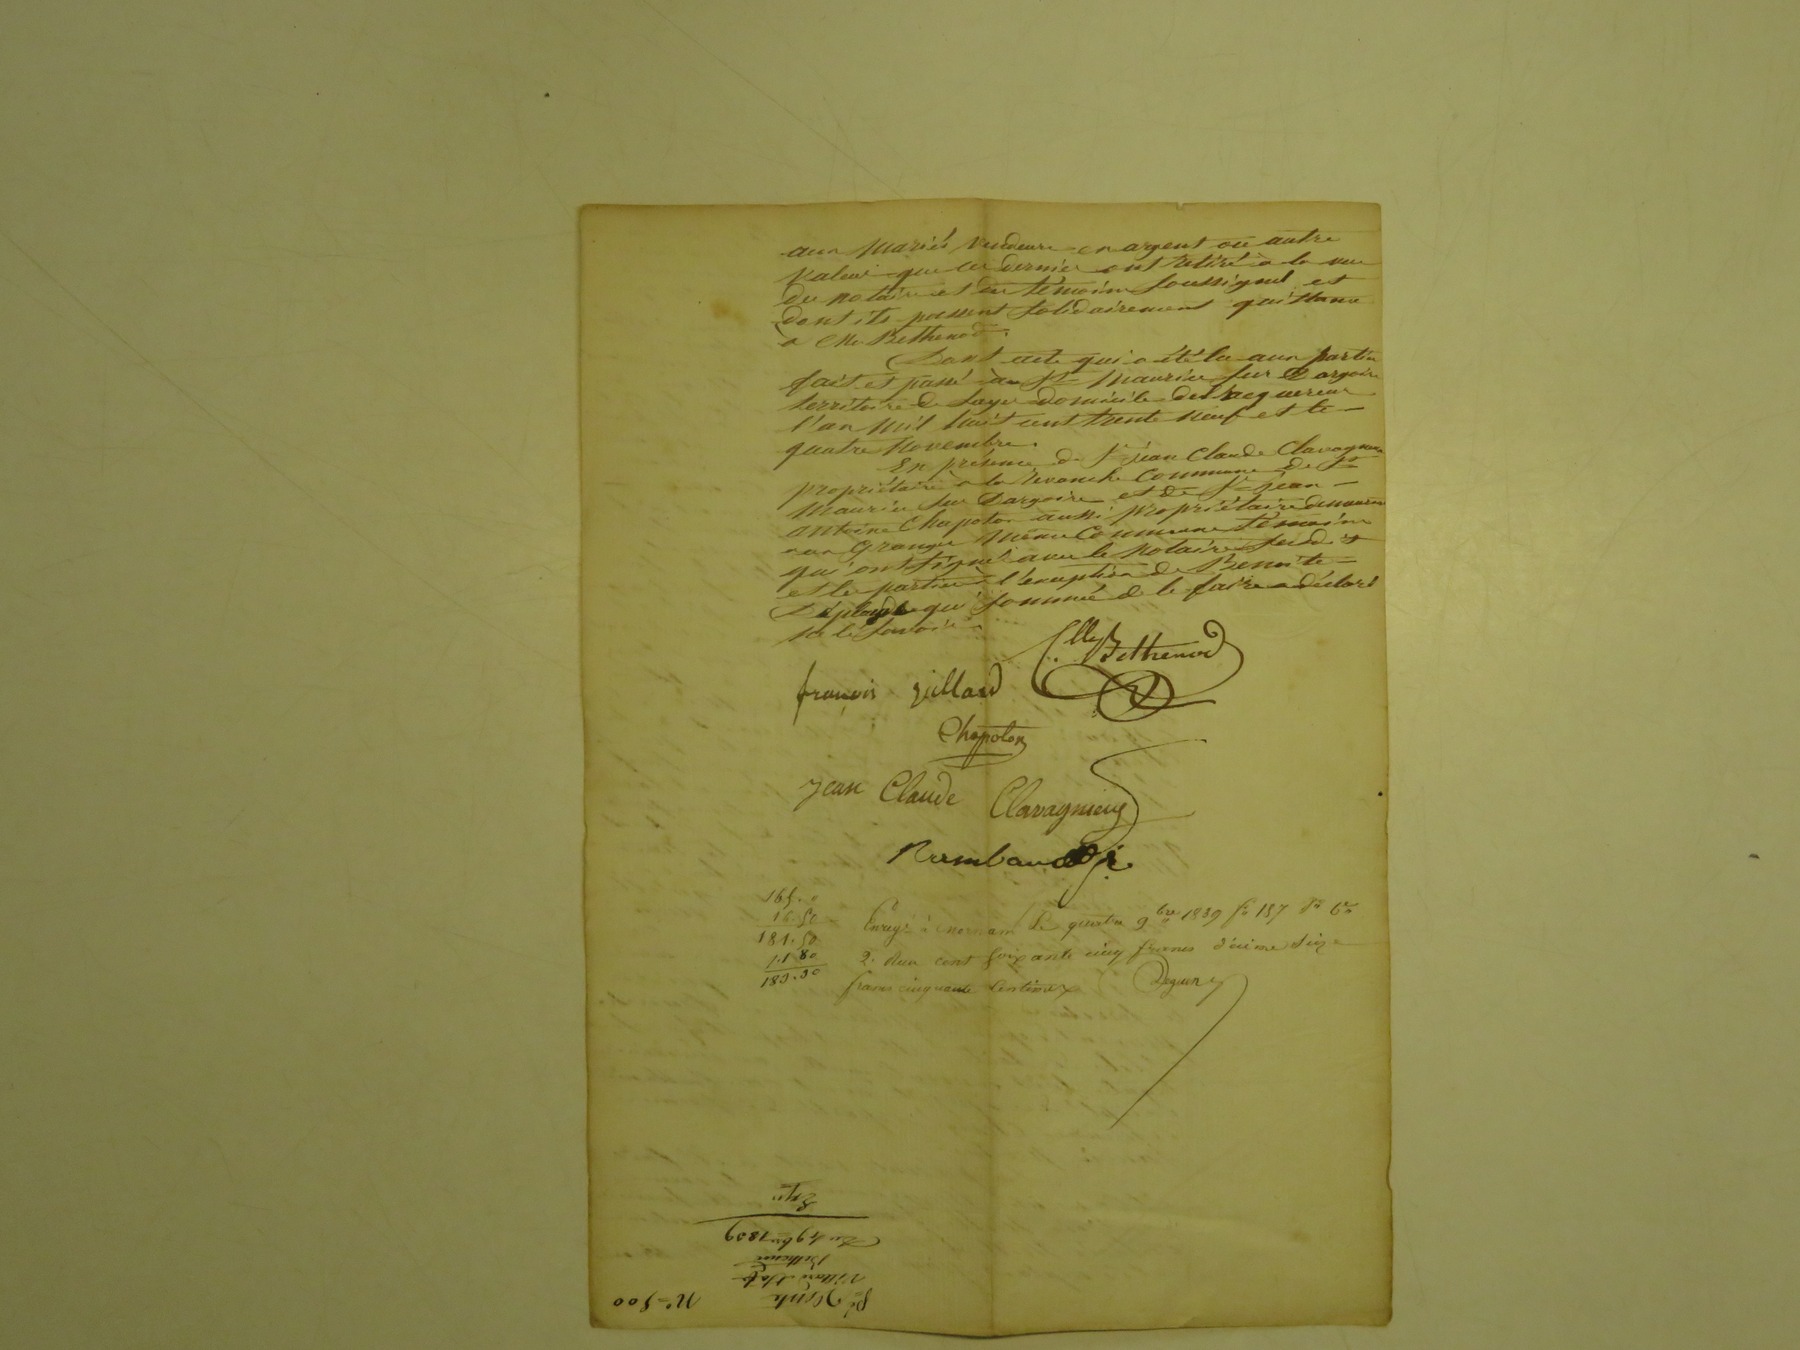 aux mariés vendeurs en argent ou autre
valeur que ces dernier ont retiré à la vue
du notaire et des témoins soussignés et
dont ils passent solidairement quittance
à Mr Bethenod.
Dont acte qui a été lu aux parties
fait et passé à St Maurice sur Dargoire
territoire de domicile de l'acquereur
l'an mil huit cent trente neuf et le
quatre novembre.
En présence de Sr jean Claude Clavagnieux
propriétaire à la commune de St
Maurice sur Dargoire et de Sr jean
antoine Chapolon aussi propriétaire demeurant
aux Granges même Commune témoins
qui ont signé avec le notaire susdit
et les parties à l'exception de Benoite
qui sommée de le faire a déclaré
ne le savoir.
Bethenod
françois
Chapolon
jean Claude Clavagnieux
165.0
16.50
181.50
1.80
183.30
Enregé à mornant le quatre 9bre 1839 fo 137
2. Reçu cent soixante cinq francs décime seize
francs cinquante centimes
No 500
Vente
Bethenod
Du 4 9bre 1839